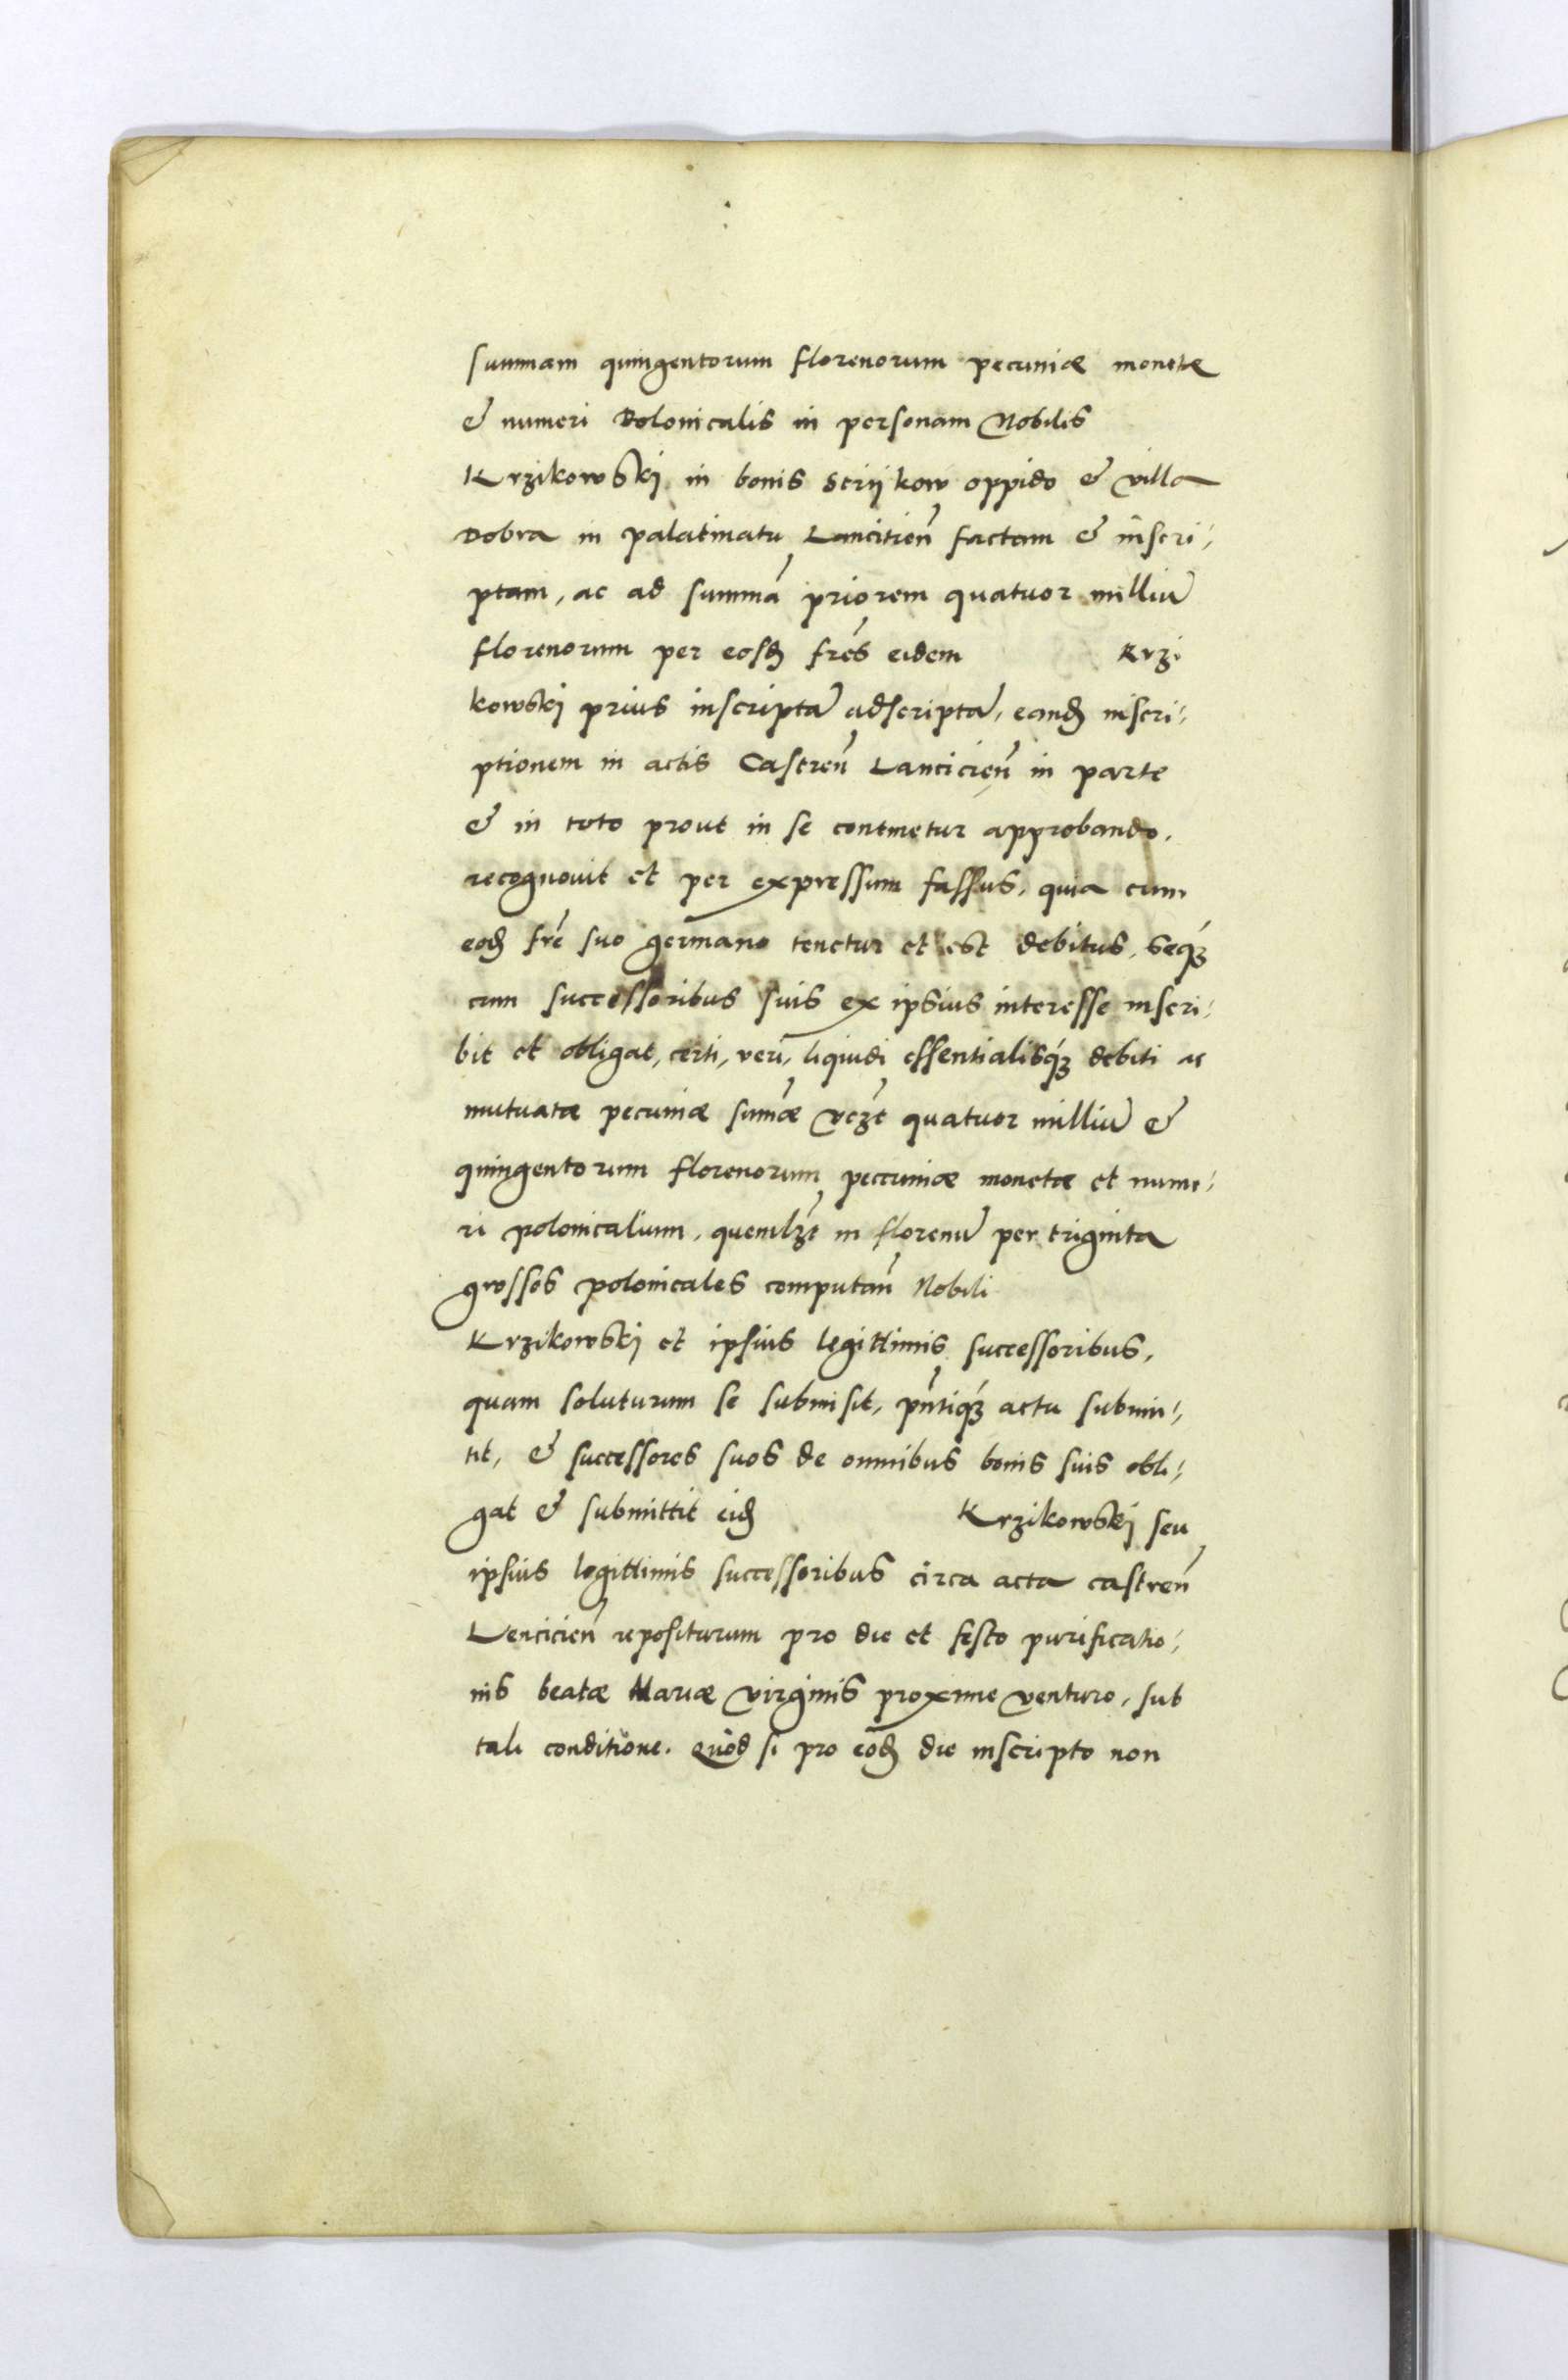 summam quingentorum florenorum pecuniæ monetæ
& numeri Polonicalis in personam Nobilis
Krzikowskj in bonis Strijkow oppido & villa
Dobra in palatinatu Lancitien̄ factam & inscri¬
ptam, ac ad summā priorem quatuor milliū
florenorum per eosđ frēs eidem Krzi
kowskj prius inscriptā adscriptā, eandđ inscri¬
ptionem in actis Castren̄ Lancicien̄ in parte
& in toto prout in se continetur approbando.
recognovit et per expressum fassus, quia cum
eođ frē suo germano tenetur et est debitus, seqꝫ
cum successoribus suis ex ipsius interesse inscri¬
bit et obligat, certi, veri, liquidi essentialisqꝫ debiti ac
mutuatæ pecuniæ sum̄æ vcꝫt quatuor milliū &
quingentorum florenorum pecuniæ monetæ et nume¬
ri polonicalium, quemlꝫt in florenū per triginta
grossos polonicales computan̄ Nobili
Krzikowskj et ipsius legittimis successoribus,
quam soluturum se submisit, pn̄tiqꝫ actu submit¬
tit, & successores suos de omnibus bonis suis obli¬
gat & submittit eiđ Krzikowskj seu
ipsius legittimis successoribus circa acta castren̄
Lencicien̄ repositurum pro die et festo purificatio¬
nis beatæ Mariæ virginis proxime venturo, sub
tali conditione. Quod si pro eođ die inscripto non